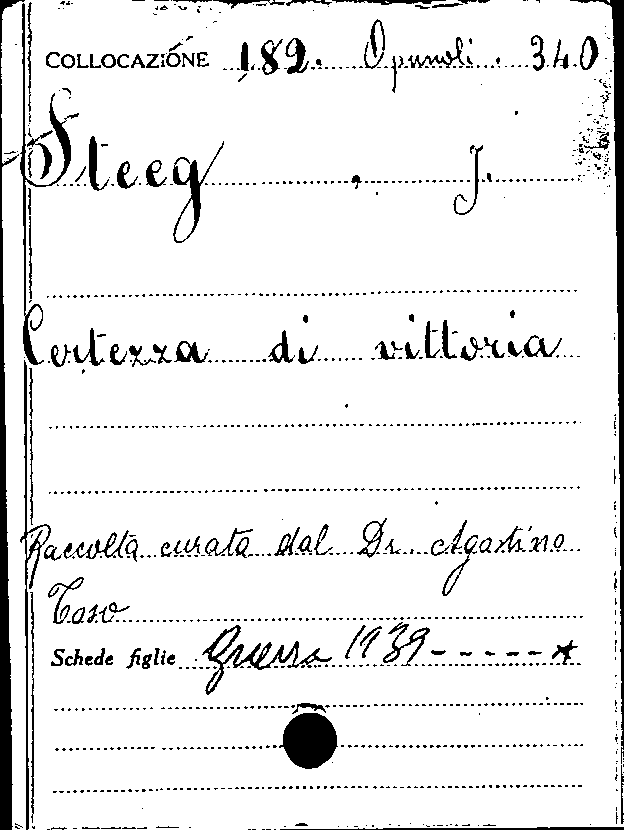 COLLOCAZIONE 182. Opuscoli. 340
Steeg, J.
Certezza di vittoria
Raccolta curata dal Dr Agostino
Toso
Schede figlie Guerra 1939-----*